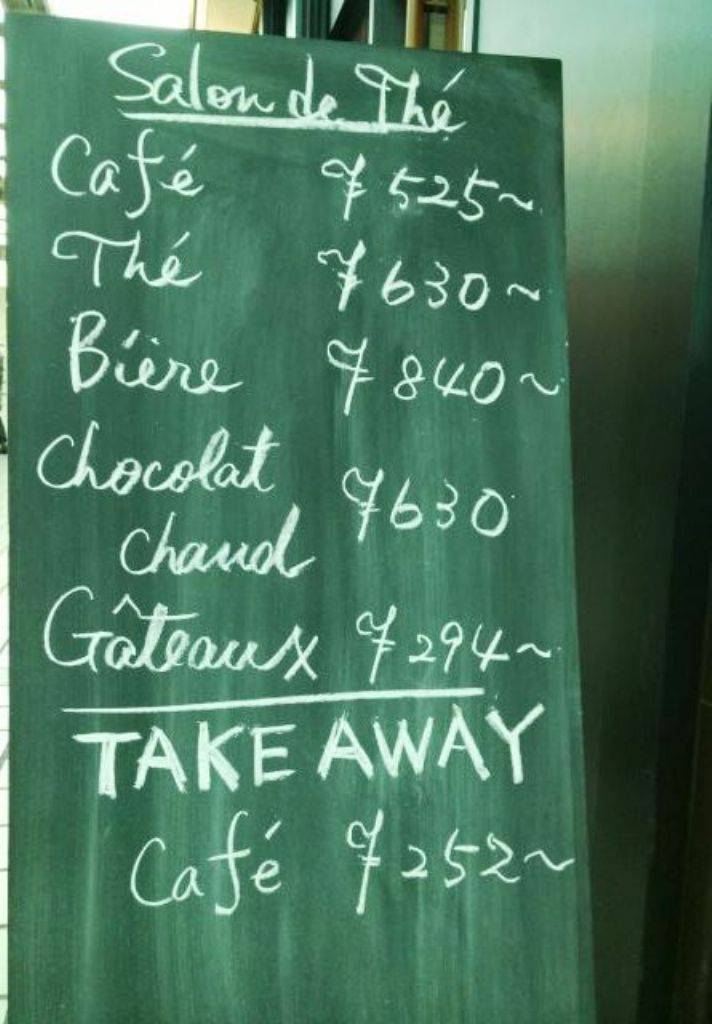 Salon de Thé
Café ¥525~
Thé ¥630~
Bière ¥840~
Chocolat
chaud ¥630
Gâteaux ¥294~
TAKE AWAY
Café ¥252~